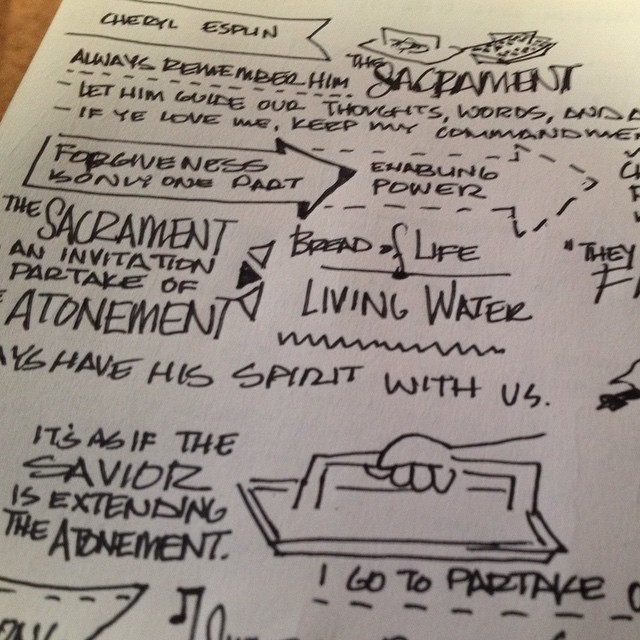 CHERYL ESPLIN
THE SACRAMENT
ALWAYS REMEMBER HIM
- LET HIM GUIDE OUR THOUGHTS, WORDS, AND
- IF YE LOVE ME, KEEP MY
FORGIVENESS
IS ONLY ONE PART
ENABLING
POWER
THE SACRAMENT
AN INVITATION
PARTAKE OF
ATONEMENT
BREAD of LIFE
LIVING WATER
"THEY
HAVE HIS SPIRIT WITH US.
IT'S AS IF THE
SAVIOR
IS EXTENDING
THE ATONEMENT.
I GO TO PARTAKE